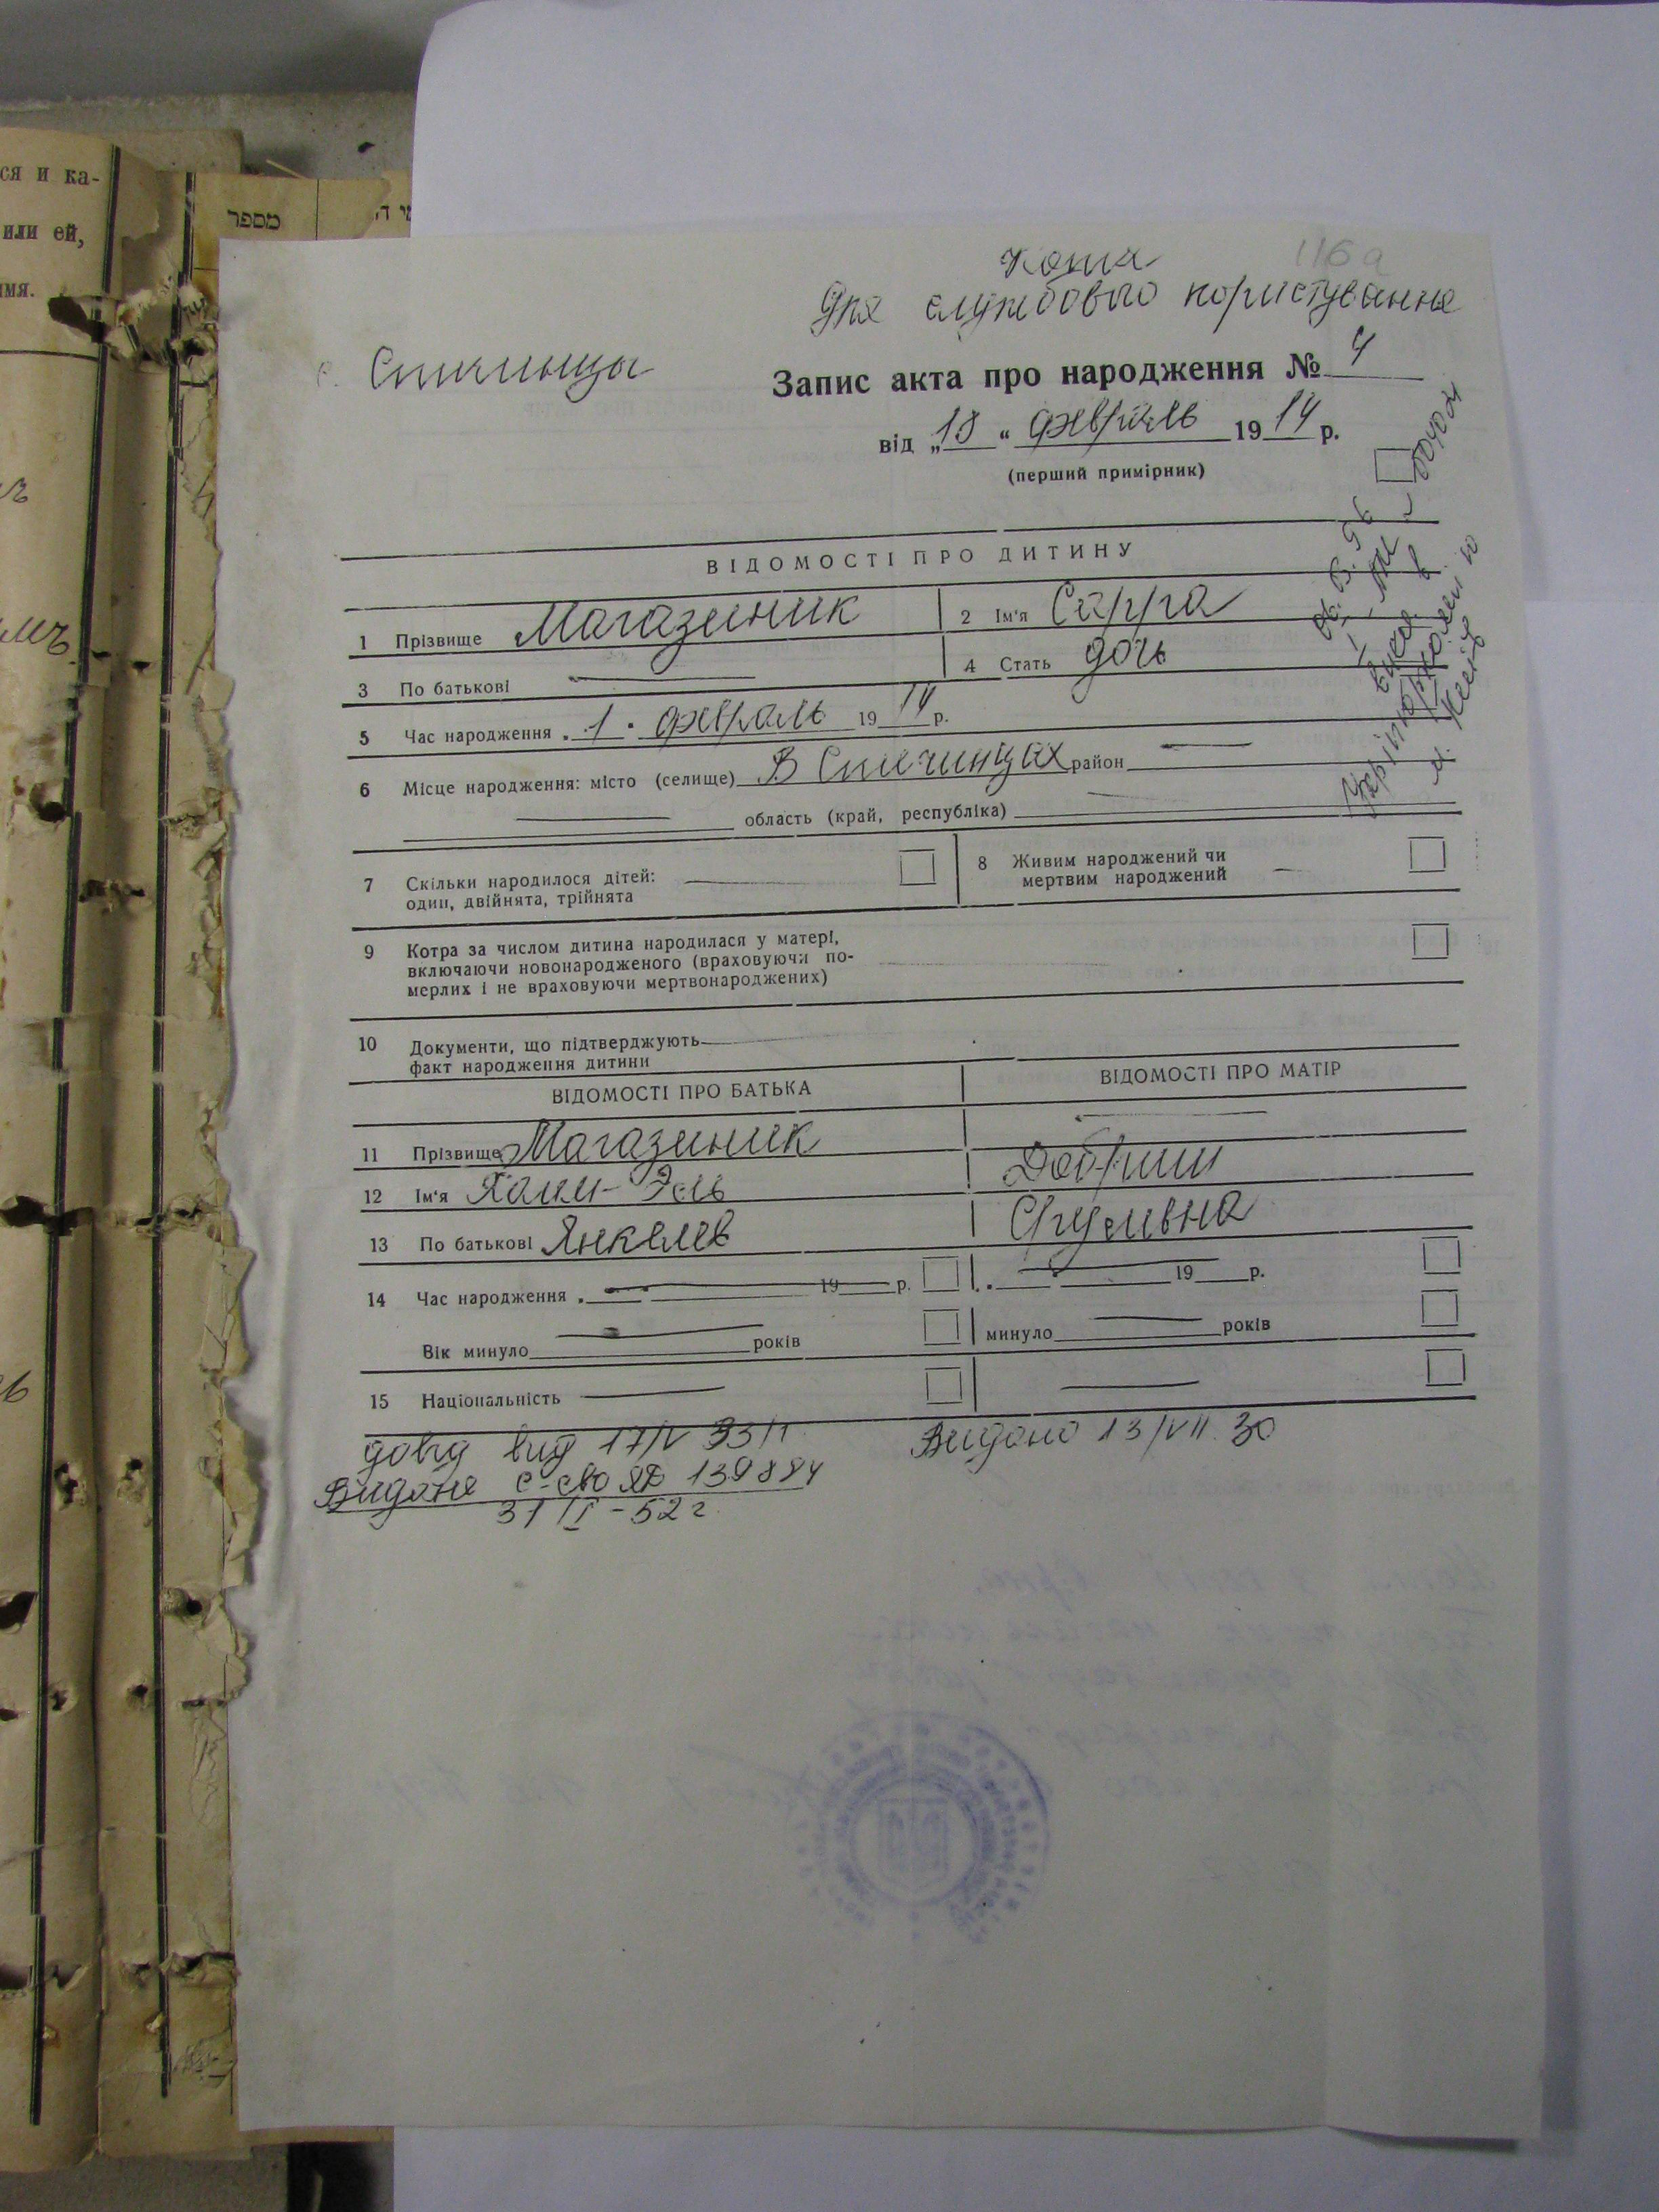 ся и ка-
или ей,
имя.
מספר
116а
Копия
Для службового користування
с. Спичинцы
Запис акта про народження № 4
від „18" февраль 1914 р.
(перший примірник)
ВІДОМОСТІ ПРО ДИТИНУ
1 Прізвище Магазиник 2 Ім'я Сарра
3 По батькові — 4 Стать дочь
5 Час народження „1" февраль 1914 р.
6 Місце народження: місто (селище) В Спичинцах район —
— область (край, республіка) —
7 Скільки народилося дітей: —
один, двійнята, трійнята
8 Живим народжений чи —
мертвим народжений
9 Котра за числом дитина народилася у матері,
включаючи новонародженого (враховуючи по-
мерлих і не враховуючи мертвонароджених)
10 Документи, що підтверджують —
факт народження дитини
ВІДОМОСТІ ПРО БАТЬКА ВІДОМОСТІ ПРО МАТІР
11 Прізвище Магазиник —
12 Ім'я Хаим-
13 По батькові Янкелев
14 Час народження — 19 р. — 19 р.
Вік минуло — років минуло — років
15 Національність — —
довід вид 17/IV 33 Видано 13/VII. 30
Видоня с-во ЯЮ 139884
31/I - 52 г.